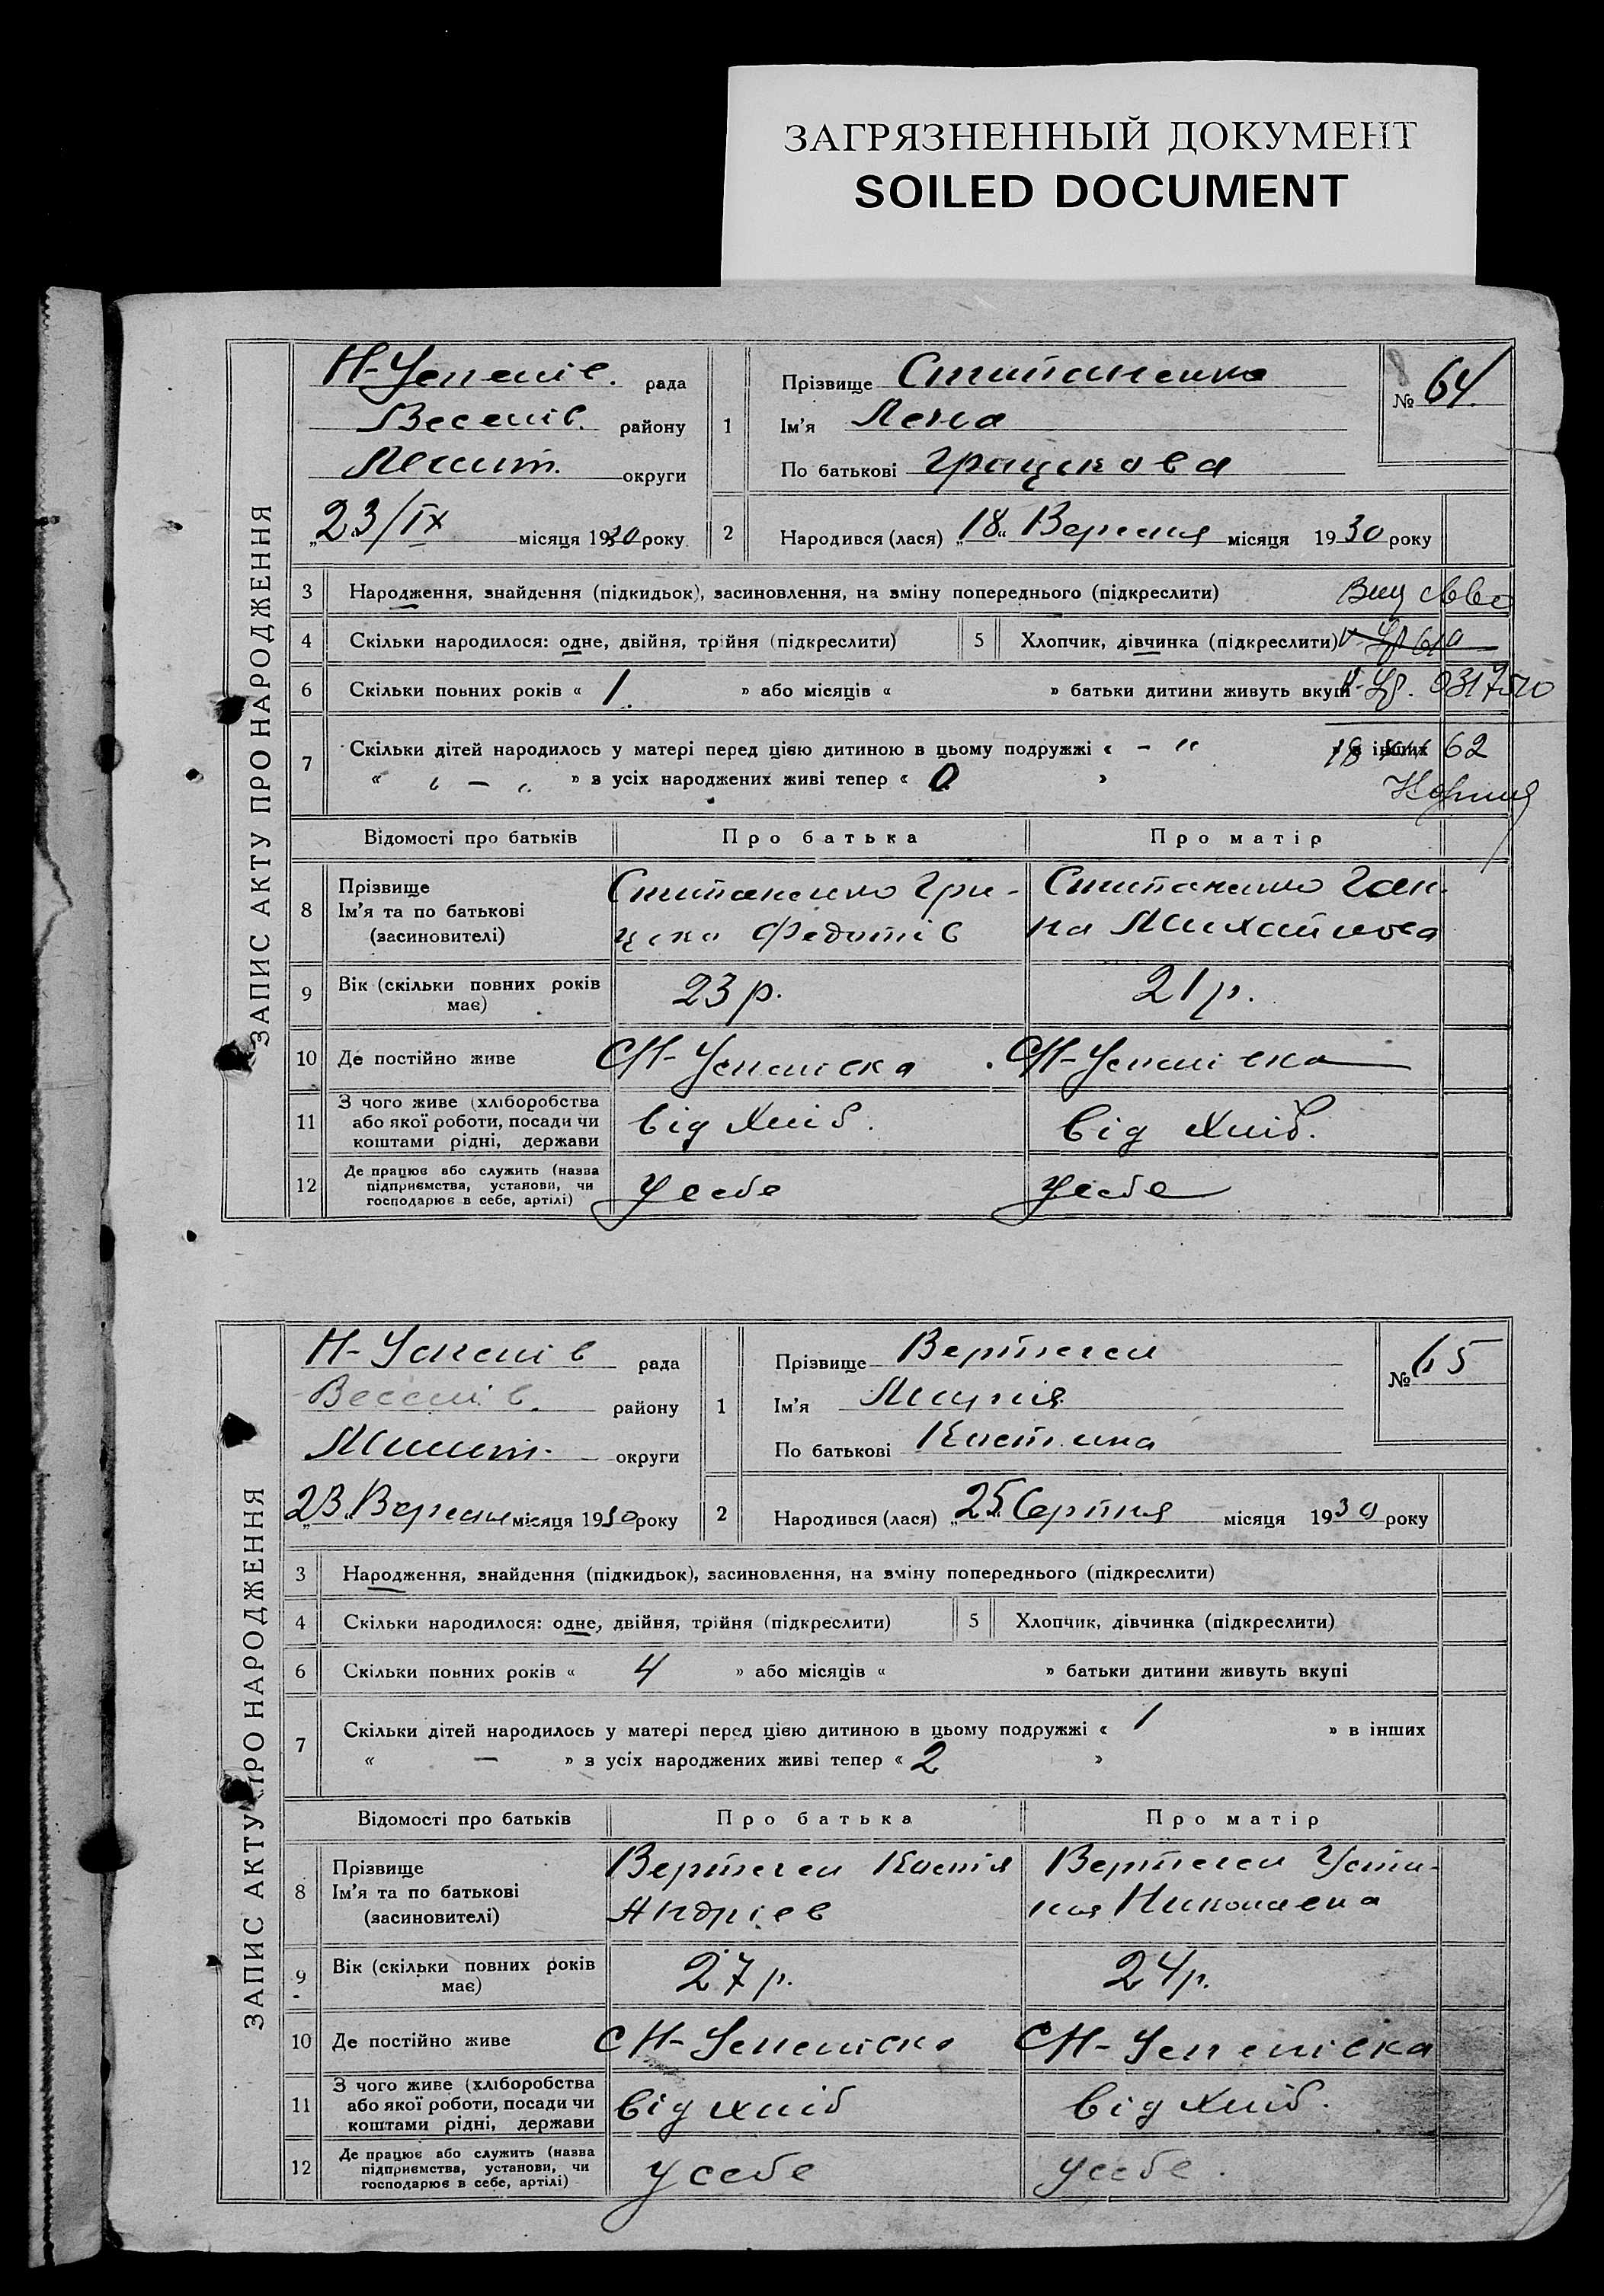 ЗАГРЯЗНЕННЫЙ ДОКУМЕНТ
SOILED DOCUMENT
ЗАПИС АКТУ ПРО НАРОДЖЕННЯ
Н-Успенів. рада
Веселів. району
Меліт. округи
„23/IX місяця 1930 року
1
Прізвище Степаненко
Ім'я Лена
По батькові Грицькова
№ 64
2 Народився (лася) „18" Вересня місяця 1930 року
3 Народження, знайдення (підкидьок), засиновлення, на зміну попереднього (підкреслити)
4 Скільки народилося: одне, двійня, трійня (підкреслити)
5 Хлопчик, дівчинка (підкреслити)
6 Скільки повних років « 1 » або місяців « » батьки дитини живуть вкупі
7 Скільки дітей народилось у матері перед цією дитиною в цьому подружжі « - " » в інших 62
« — » з усіх народжених живі тепер « 0 »
Відомості про батьків Про батька Про матір
8 Прізвище
Ім'я та по батькові
(засновителі)
Степаненко Гри-
цько Федотів
Степаненко Ган-
на Михайлова
9 Вік (скільки повних років має) 23 р. 21 р.
10 Де постійно живе С Н-Успенівка С Н-Успенівка
11 З чого живе (хліборобства
або якої роботи, посади чи
коштами рідні, держави
від хліб. від хліб.
12 Де працює або служить (назва
підприємства, установи, чи
господарює в себе, артілі)
у себе у себе
ЗАПИС АКТУ ПРО НАРОДЖЕННЯ
Н-Успенів рада
Веселів. району
Меліт. округи
„23 Вересня місяця 1930 року
1
Прізвище Вертегел
Ім'я Марія
По батькові Костина
№ 65
2 Народився (лася) „25" Серпня місяця 1930 року
3 Народження, знайдення (підкидьок), засиновлення, на зміну попереднього (підкреслити)
4 Скільки народилося: одне, двійня, трійня (підкреслити)
5 Хлопчик, дівчинка (підкреслити)
6 Скільки повних років « 4 » або місяців « » батьки дитини живуть вкупі
7 Скільки дітей народилось у матері перед цією дитиною в цьому подружжі « 1 » в інших
« — » з усіх народжених живі тепер « 2 »
Відомості про батьків Про батька Про матір
8 Прізвище
Ім'я та по батькові
(засиновителі)
Вертегел Костя
Андріев
Вертегел Усти-
ня Николаева
9 Вік (скільки повних років має) 27 р. 24 р.
10 Де постійно живе С Н-Успенівка С Н-Успенівка
11 З чого живе (хліборобства
або якої роботи, посади чи
коштами рідні, держави
від хліб від хліб.
12 Де працює або служить (назва
підприємства, установи, чи
господарює в себе, артілі)
у себе у себе.